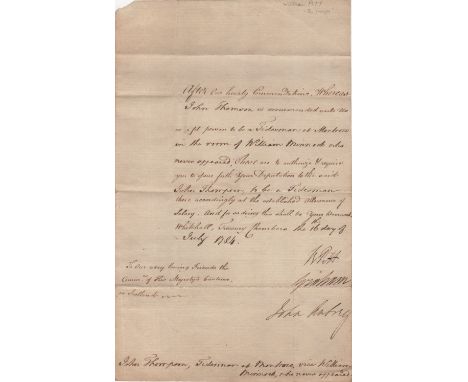 William Pitt
After Our hearty Commendations. Whereas
John Thomson is recommended unto Us
as a fit person to be a Tidesman at Montrose
in the room of William Minnock who
never appeared; These are to authorize & require
you to issue forth your Deputation to the said
John Thompson to be a Tidesman
there accordingly at the established Allowance of
Salary. And for so doing this shall be Your Warrant
Whitehall, Treasury Chambers the 16th day of
July 1784.
W Pitt
Graham
John Aubrey
To Our very loving Friends the
Commrs of His Majesty's Customs,
in Scotland
John Thompson, Tidesman at Montrose, vice William
Minnock, who never appeared